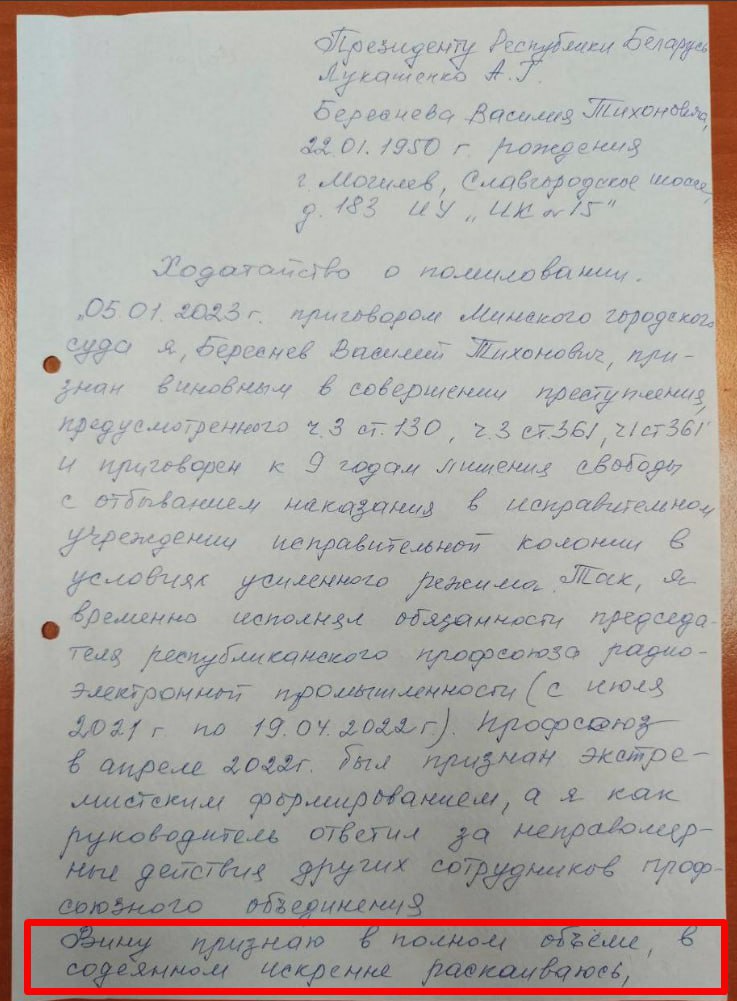 Президенту Республики Беларусь
Лукашенко А.Г.
Береснева Василия Тихоновича,
22.01.1950 г. рождения
г. Могилев, Славгородское шоссе,
д. 183 ИУ "ИК №15"
Ходатайство о помиловании.
05.01.2023 г. приговором Минского городского
суда я, Береснев Василий Тихонович, при-
знан виновным в совершении преступления,
предусмотренного ч.3 ст.130, ч.3 ст361, ч1ст361
и приговорен к 9 годам лишения свободы
с отбыванием наказания в исправительном
учреждении исправительной колонии в
условиях усиленного режима. Так, я
временно исполнял обязанности председа-
теля республиканского профсоюза радио-
электронной промышленности (с июля
2021 г. по 19.04.2022 г.). Профсоюз
в апреле 2022г. был признан экстре-
мистским формированием, а я как
руководитель ответил за неправомер-
ные действия других сотрудников проф-
союзного объединения
Вину признаю в полном объёме, в
содеянном искренне раскаиваюсь,